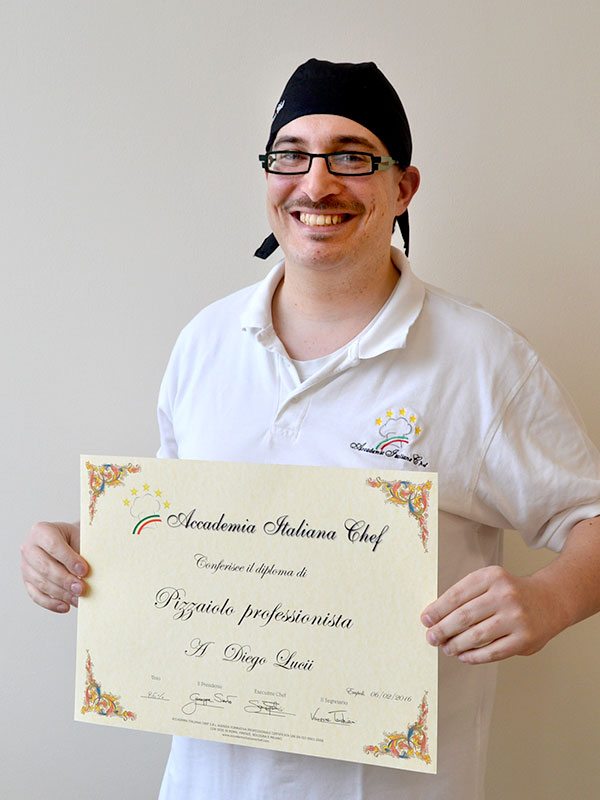 Accademia Italiana Chef
Accademia Italiana Chef
Conferisce il diploma di
Pizzaiolo professionista
A Diego Lucii
Empoli, 06/02/2016
Visto
Il Presidente
Executive Chef
Il Segretario
www.accademiaitalianachef.com